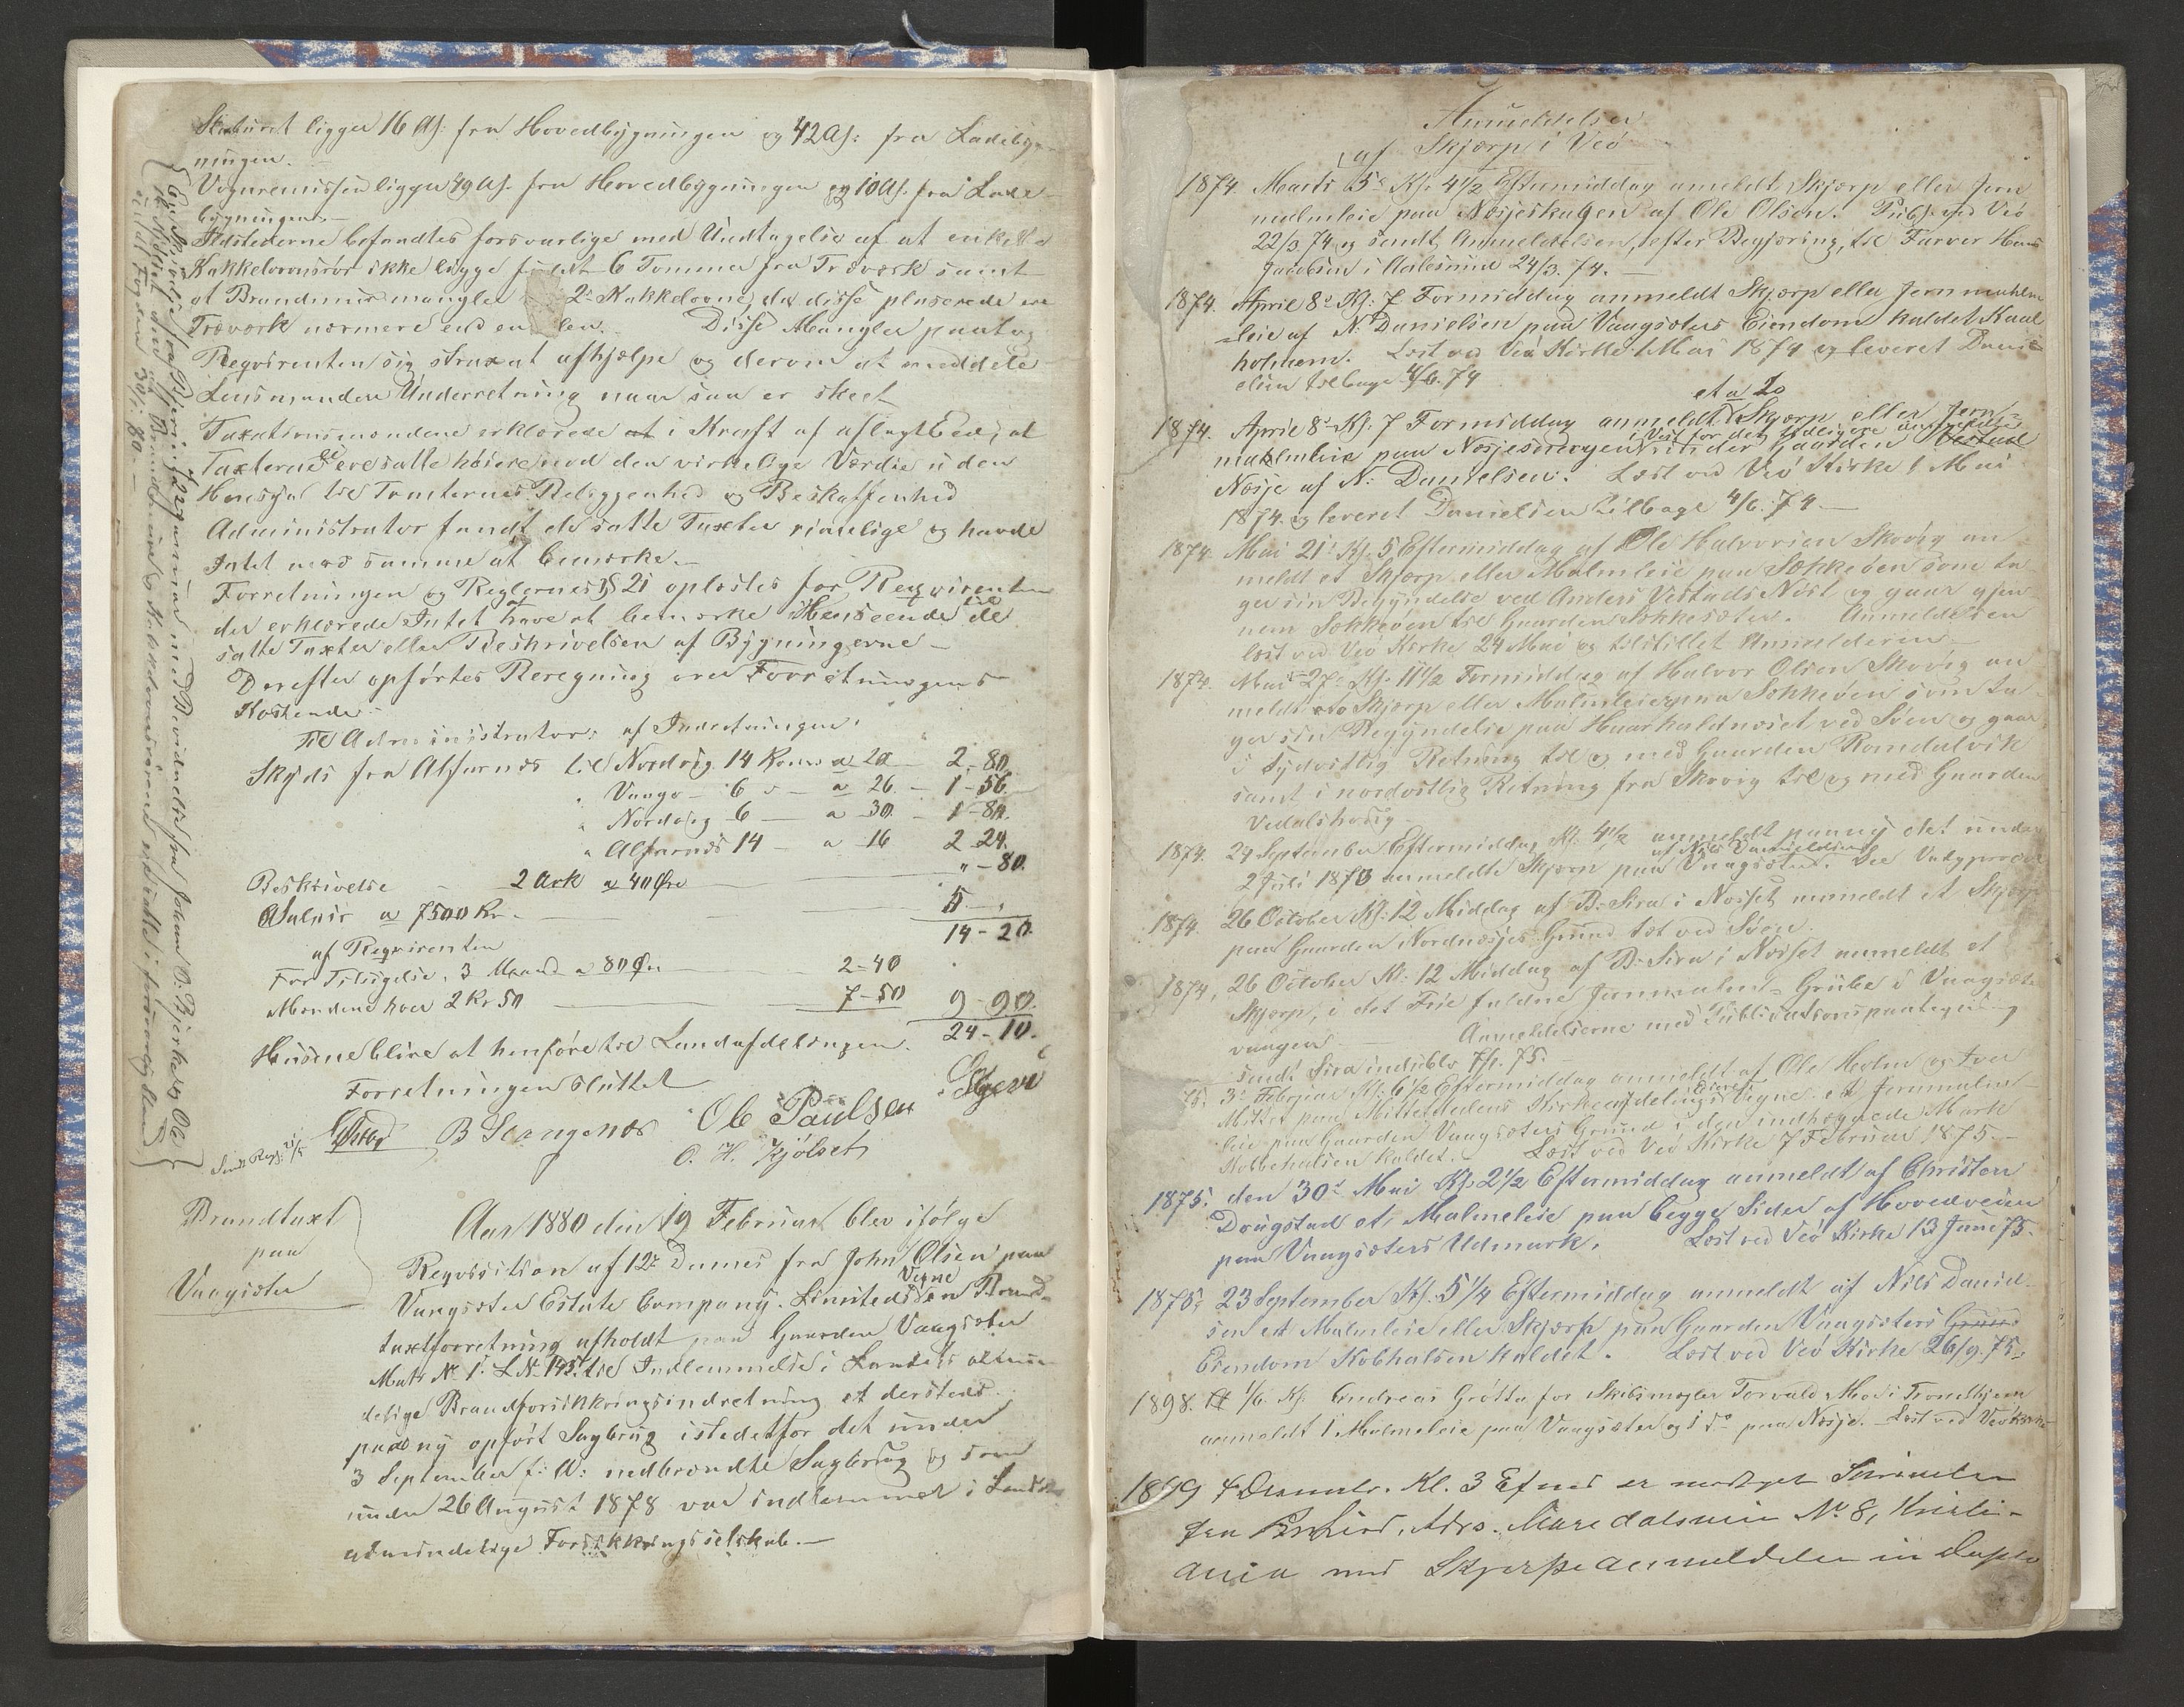 Staburet ligger 16 Al: fra Hovedbygningen og 42 Al: fra Ladebyg-
ningen.
Vognremissen ligger 49 Al. fra Hovedbygningen og 10 Al. fra Lade-
bygningen.
Ildstederne befandtes forsvarlige med Undtagelse af at enkelte
Kakkelovnsrør ikke ligge 6 Tommer fra Træværk samt
at Brandmur mangler 2 Kakkelovne, da disse placerede ere
Træværk nærmere end en. Disse Mangler paatog
Reqvirenten sig strax at afhjælpe og derom at meddele
Lensmanden Underretning naar saa er skeet
Taxationsmændene erklærede at i Kraft af aflagt Eed, at
Taxterne ei ere satte høiere end den virkelige Værdie uden
Hensyn til Tomternes Beliggenhed og Beskaffenhed
Administrator fandt de satte Taxter rimelige og havde
Intet mod samme at bemærke.
Forretningen og Reglernes § 21 oplæstes for Reqvirenten
der erklærede Intet at have at bemærke i Henseende til de
satte Taxter eller Beskrivelsen af Bygningerne -
Derefter opførtes Beregning over Forretningens
Kostende -
Til Administrator: af Indretningen:
Skyds fra Alfarnæs til Nordvig 14 Kmr a 20 2-80.
" Vaage - 6 - a 26 - 1-56.
" Nordvig 6 - a 30 1-80.
" Alfarnæs 14 - a 16 2-24.
Beskrivelse 2 Ark a 40 Øre " - 80.
Salair a 7500 Kr. 5 - "
14-20.
af Reqvirenten
For Tilsigelse, 3 Mænd a 80 Øre 2-40
Mændene hver 2 Kr 50 7-50 9-90.
24-10.
Husene blive at henføre til Landafdelingen.
Forretningen sluttet
B Stangenæs Ole Paulsen
O. H. Kjølset
Brandtaxt
paa
Vaagsæter
Aar 1880 den 19 Februar blev ifølge
Reqvisition af 12te Dennes fra John Olsen paa
Vaagsæter Estate Company Limiteds Vegne en Brand-
taxtforretning afholdt paa Gaarden Vaagsæter
Matr No 1. L No 145 til Indlemmelse i Landets almin-
delige Brandforsikkringsindretning et dersteds
paa ny opført Sagbrug istedetfor det under
3 September f: A: nedbrændte Sagbrug og som
under 26 August 1878 var indlemmet i Landets
almindelige Forsikkringsselskab. -
Anmeldelser
af Skjærp i Veø
1874. Marts 5te Kl. 4 1/2 Eftermiddag anmeldt Skjærp eller Jern
malmleie paa Næsjeskagen af Ole Olsen. Publ. ved Veø
22/3 74 og sendt Anmeldelsen, efter Begjæring, til Farver Hans
Jacobsen i Aalesund 24/3. 74. -
1874. April 8de Kl: 7 Formiddag anmeldt Skjærp eller Jernmalm
-leie af N. Danielsen paa Vaagsæters Eiendom kaldet Kaal
holmem. Læst ved Veø Kirke 1 Mai 1874 og leveret Dani-
elsen tilbage 4/6. 74
1874. April 8de Kl. 7 Formiddag anmeldt Skjærp eller Jern-
malmleie paa Næsjesdragen Vest for det tidligere anmeldte under Gaarden Vestad
Næsje af N: Danielsen: Læst ved Veø Kirke 1 Mai
1874 og leveret Danielsen tilbage 4/6. 74 -
1874. Mai 21. Kl. 5 Eftermiddag af Ole Halvorsen Skovig an
meldt et Skjærp eller Malmleie paa Sækkeøen som ta-
ger sin Begyndelse ved Anders Vestads Nøst og gaar gjen-
nem Sækkeøen til Gaarden Sækkesæter. Anmeldelsen
læst ved Veø Kirke 24 Mai og tilstillet Anmelderen -
1874. Mai 27. Kl. 11 1/2 Formiddag af Halvor Olsen Skovig an
meldt Skjærp eller Malmleier paa Sækkeøen som ta-
ger sin Begyndelse paa Haarhaldnæset ved Søen og gaar
i sydvestlig Retning til og med Gaarden Romdalvik
samt i nordostlig Retning fra Skovig til og med Gaarden
Vedalshovig -
1874. 24 September Eftermiddag Kl. 4 1/2 anmeldt paany det under
2 Juli 1870 anmeldte Skjærp paa Vaagsæter af Nils Danielsen.
1874. 26 October Kl. 12 Middag af B. Sira i Næsset anmeldt et Skjærp
paa Gaarden Nordnæsjes Grund tæt ved Søen.
1874. 26 October Kl. 12 Middag af B. Sira i Næsset anmeldt et
Skjærp, i det Frie faldne Jernmalm-Grube i Vaagsæter
vaagen. Anmeldelserne med Publicationspaategning
sendt Sira 75. -
75. 3 Februar Kl. 6 1/2 Eftermiddag anmeldt af Ole Holm og Iver
Mittet paa Mittetdalens Kirkeafdelings Eieres Vegne et Jernmalm-
leie paa Gaarden Vaagsæters Grund i den indhegnede Mark
Kobbehalsen kaldet. Læst ved Veø Kirke 7 Februar 1875. -
1875. den 30te Mai Kl. 2 1/2 Eftermiddag anmeldt af Christen
Dragstad et Malmleie paa begge Sider af Hovedveien
paa Vaagsæters Udmark. Læst ved Veø Kirke 13 Juni 75.
1875. 23 September Kl. 5 1/4 Eftermiddag anmeldt af Nils Daniel-
sen et Malmleie eller Skjærp paa Gaarden Vaagsæters Grund
Eiendom Kobhalsen kaldet. Læst ved Veø Kirke 26/9. 75.
1898. 1/6. Kl. Andreas Grøtta for Skibsmægler Torvald Moe i Trondhjem
anmeldt 1 Malmleie paa Vaagsæter og 1 do paa Næsje. Læst ved Veø Kirke
1899 4 December. Kl. 3 Efmd er modtaget Skrivelse
fra Adrs. Maredalsveien No 8, Kristi-
ania med Skjærpeanmeldelse in duplo